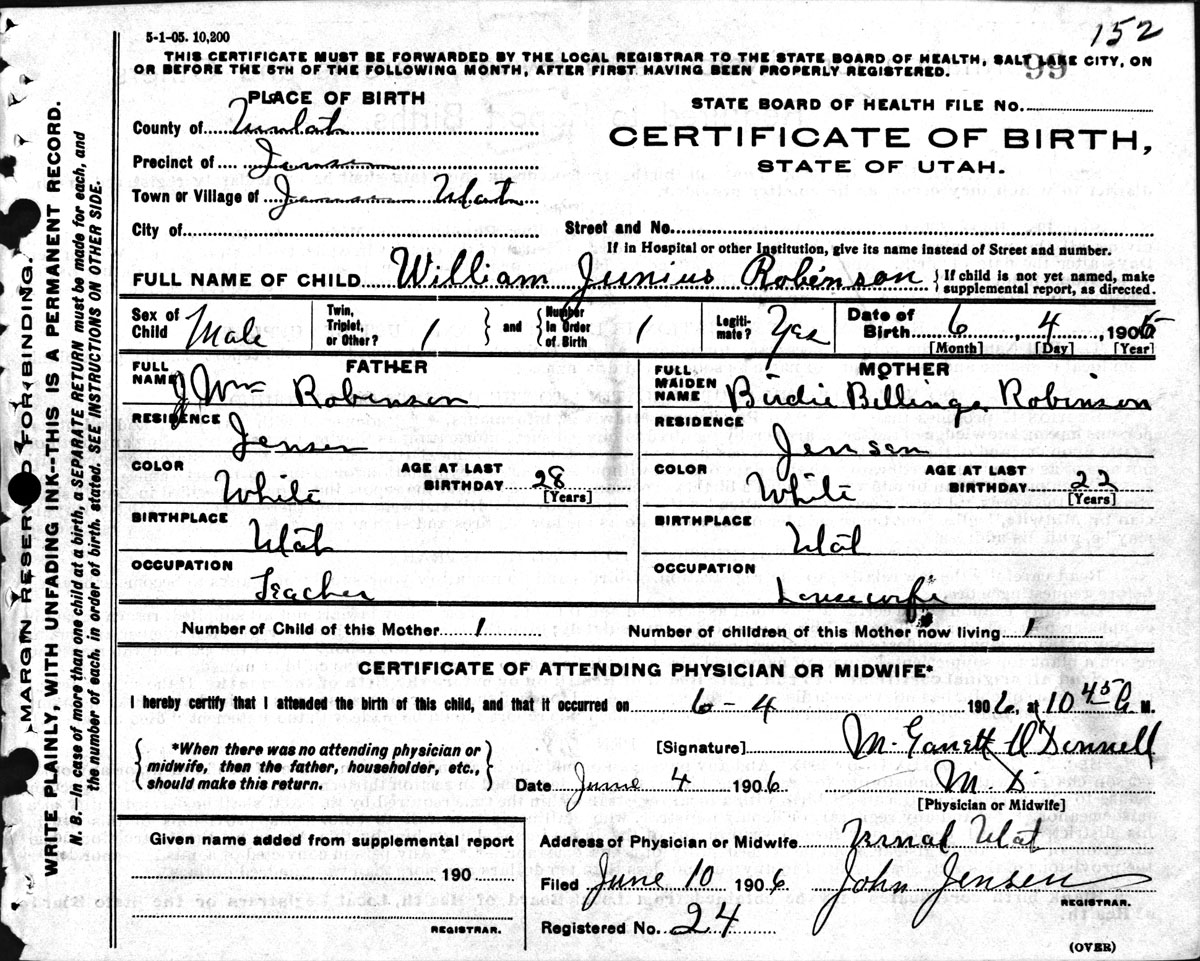 152
5-1-05. 10,200
THIS CERTIFICATE MUST BE FORWARDED BY THE LOCAL REGISTRAR TO THE STATE BOARD OF HEALTH, SALT LAKE CITY, ON
OR BEFORE THE 5TH OF THE FOLLOWING MONTH, AFTER FIRST HAVING BEEN PROPERLY REGISTERED.
99
PLACE OF BIRTH
STATE BOARD OF HEALTH FILE No.
County of
CERTIFICATE OF BIRTH,
Precinct of Jensen
STATE OF UTAH.
Town or Village of Jensen Utah
City of
Street and No.
If in Hospital or other Institution, give its name instead of Street and number.
FULL NAME OF CHILD William Junius Robinson { If child is not yet named, make supplemental report, as directed.
Sex of Child Male Twin, Triplet, or Other? 1 } and { Number in Order of Birth 1 Legiti-mate? Yes Date of Birth 6, 4, 1906
[Month] [Day] [Year]
FATHER
MOTHER
FULL NAME J Wm Robinson
FULL MAIDEN NAME Birdie Billings Robinson
RESIDENCE Jensen
RESIDENCE Jensen
COLOR White AGE AT LAST BIRTHDAY 28 [Years]
COLOR White AGE AT LAST BIRTHDAY 22 [Years]
BIRTHPLACE Utah
BIRTHPLACE Utah
OCCUPATION Teacher
OCCUPATION Housewife
Number of Child of this Mother 1 Number of children of this Mother now living 1
CERTIFICATE OF ATTENDING PHYSICIAN OR MIDWIFE*
I hereby certify that I attended the birth of this child, and that it occurred on 6-4 1906, at 10 45 M.
{ *When there was no attending physician or midwife, then the father, householder, etc., should make this return. }
[Signature] M. Garrett O'Donnell
Date June 4 1906 M. D
[Physician or Midwife]
Given name added from supplemental report
190
REGISTRAR.
Address of Physician or Midwife Vernal Utah
Filed June 10 1906 John Jensen
REGISTRAR.
Registered No. 24
(OVER)
MARGIN RESERVED FOR BINDING.
WRITE PLAINLY, WITH UNFADING INK--THIS IS A PERMANENT RECORD.
N. B.--In case of more than one child at a birth, a SEPARATE RETURN must be made for each, and
the number of each, in order of birth, stated. SEE INSTRUCTIONS ON OTHER SIDE.